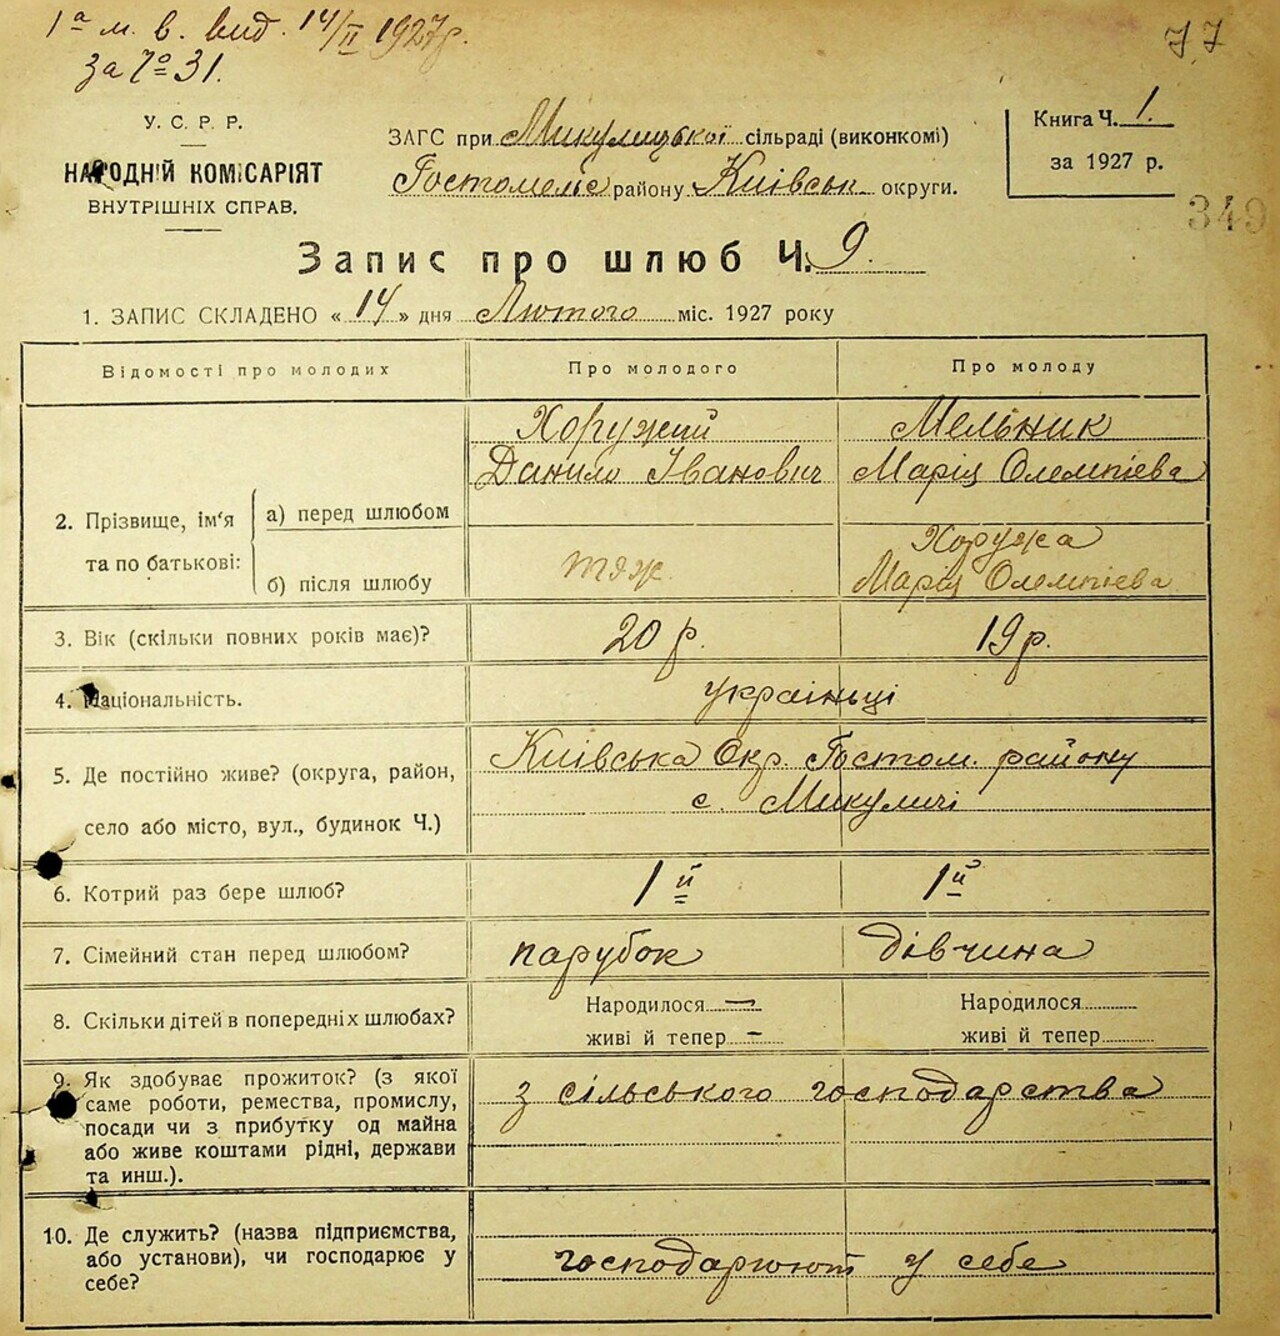 1а м. в. вид. 14/II 1927р.
за №31.
77
У. С. Р. Р.
НАРОДНІЙ КОМІСАРІЯТ
ВНУТРІШНІХ СПРАВ.
ЗАГС при Микулицької сільраді (виконкомі)
Гостомельс району Київськ округи.
Книга Ч. 1.
за 1927 р.
349
Запис про шлюб Ч. 9.
1. ЗАПИС СКЛАДЕНО « 14 » дня Лютого міс. 1927 року
Відомості про молодих
Про молодого
Про молоду
2. Прізвище, ім'я та по батькові:
а) перед шлюбом
Хоружий
Данило Іванович
Мельник
Марія Олемпіева
б) після шлюбу
теж.
Хоружа
Марія Олемпіева
3. Вік (скільки повних років має)?
20 р.
19 р.
4. Національність.
українці
5. Де постійно живе? (округа, район,
село або місто, вул., будинок Ч.)
Київська Окр. Гостом. району
с. Микуличі
6. Котрий раз бере шлюб?
1й
1й
7. Сімейний стан перед шлюбом?
парубок
дівчина
8. Скільки дітей в попередніх шлюбах?
Народилося —
живі й тепер —
Народилося
живі й тепер
9. Як здобуває прожиток? (з якої
саме роботи, ремества, промислу,
посади чи з прибутку од майна
або живе коштами рідні, держави
та инш.).
з сільського господарства
10. Де служить? (назва підприємства,
або установи), чи господарює у
себе?
господарюють у себе